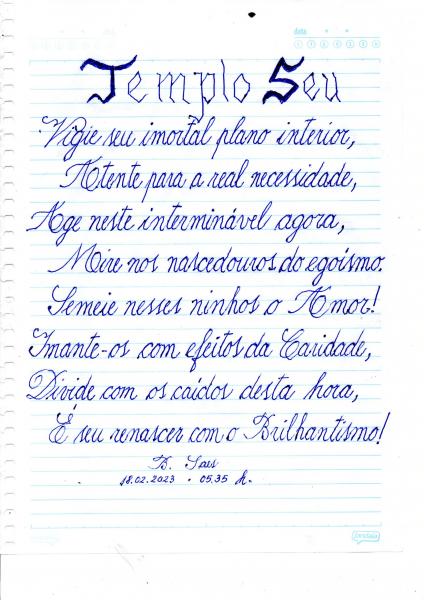 data
Templo Seu
Vigie seu imortal plano interior,
Atente para a real necessidade,
Age neste interminável agora,
Mire nos nascedouros do egoísmo.
Semeie nesses ninhos o Amor!
Imante-os com efeitos da Caridade,
Divide com os caídos desta hora,
É seu renascer com o Brilhantismo!
B.
18.02.2023 . 05.35 h.